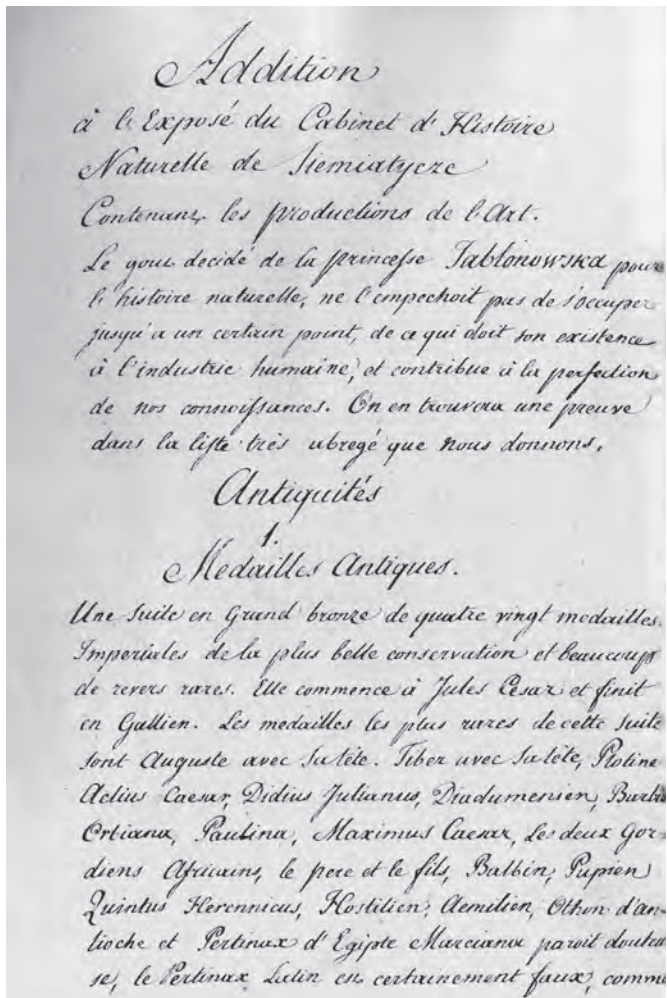 Addition
à l'Exposé du Cabinet d'Histoire
Naturelle de Siemiatycze
Contenant les productions de l'Art.
Le gout decidé de la princesse Jabłonowska pour
l'histoire naturelle, ne l'empechoit pas de s'occuper
jusqu'a un certain point, de ce qui doit son existence
à l'industrie humaine, et contribue à la perfection
de nos connoissances. On en trouvera une preuve
dans la liste très abregé que nous donnons.
Antiquités
1.
Medailles Antiques.
Une Suite en Grand bronze de quatre vingt medailles.
Imperiales de la plus belle conservation et beaucoup
de revers rares. Elle commence à Jules César et finit
en Gallien. Les medailles les plus rares de cette Suite
sont Auguste avec Sa tête. Tiber avec Sa tête, Plotine
Aelius Caesar, Didius Julianus, Diadumenien, Barbia
Orbiana, Paulina, Maximus Caesar, Les deux Gor-
diens Africains, le pere et le fils, Balbin, Pupien
Quintus Herennicus, Hostilien, Aemilien, Othon d'an-
tioche et Pertinax d'Egipte Marciana paroit douteu
se, le Pertinax Latin est certainement faux, comme